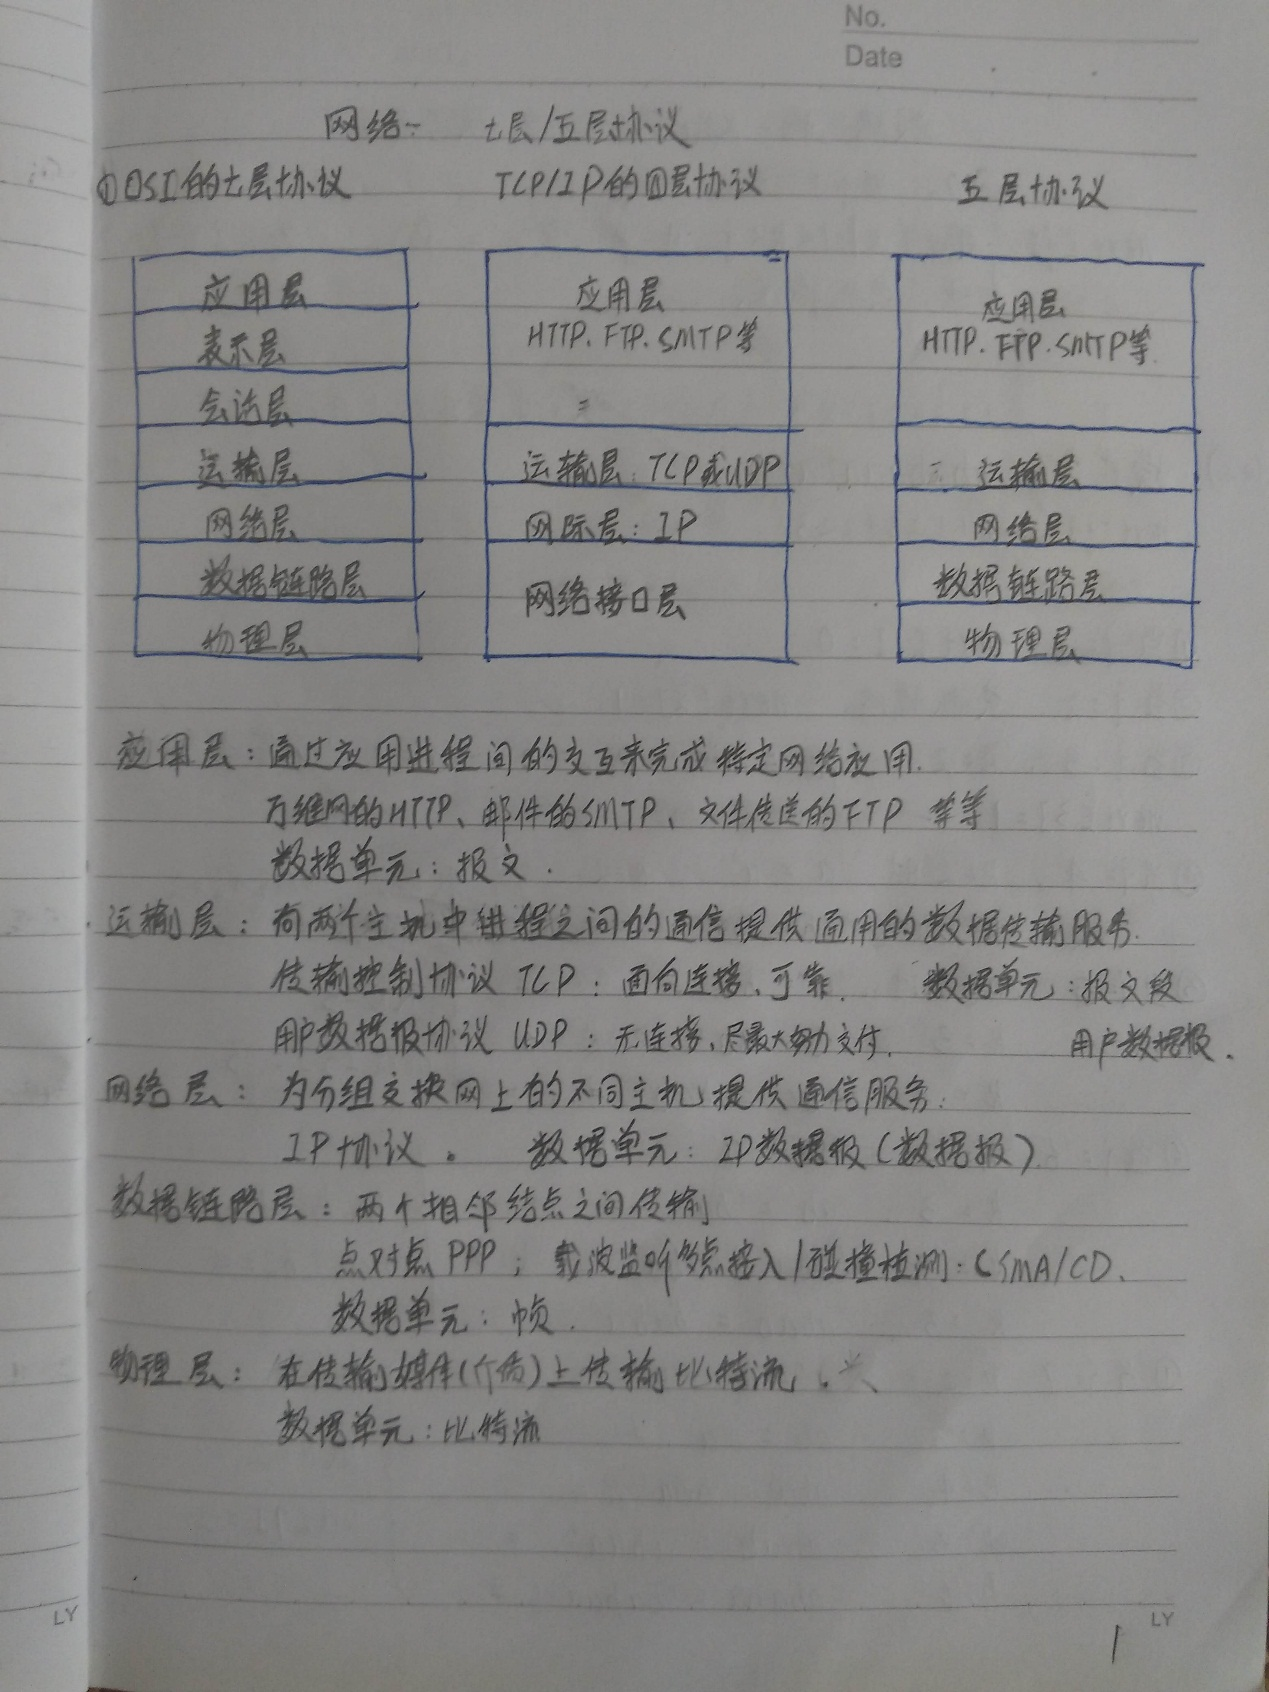 No.
Date
网络一 七层/五层协议
①OSI的七层协议 TCP/IP的四层协议 五层协议
应用层
表示层
会话层
运输层
网络层
数据链路层
物理层
应用层
HTTP、FTP、SMTP等
运输层:TCP或UDP
网际层:IP
网络接口层
应用层
HTTP、FTP、SMTP等
运输层
网络层
数据链路层
物理层
应用层:通过应用进程间的交互来完成特定网络应用.
万维网的HTTP、邮件的SMTP、文件传送的FTP 等等
数据单元:报文.
运输层:向两个主机中进程之间的通信提供通用的数据传输服务.
传输控制协议 TCP:面向连接、可靠. 数据单元:报文段
用户数据报协议 UDP:无连接、尽最大努力交付. 用户数据报.
网络层:为分组交换网上的不同主机提供通信服务.
IP协议。 数据单元:IP数据报(数据报)
数据链路层:两个相邻结点之间传输
点对点PPP;载波监听多点接入/碰撞检测:CSMA/CD.
数据单元:帧.
物理层:在传输媒体(介质)上传输比特流.
数据单元:比特流
LY
LY
1